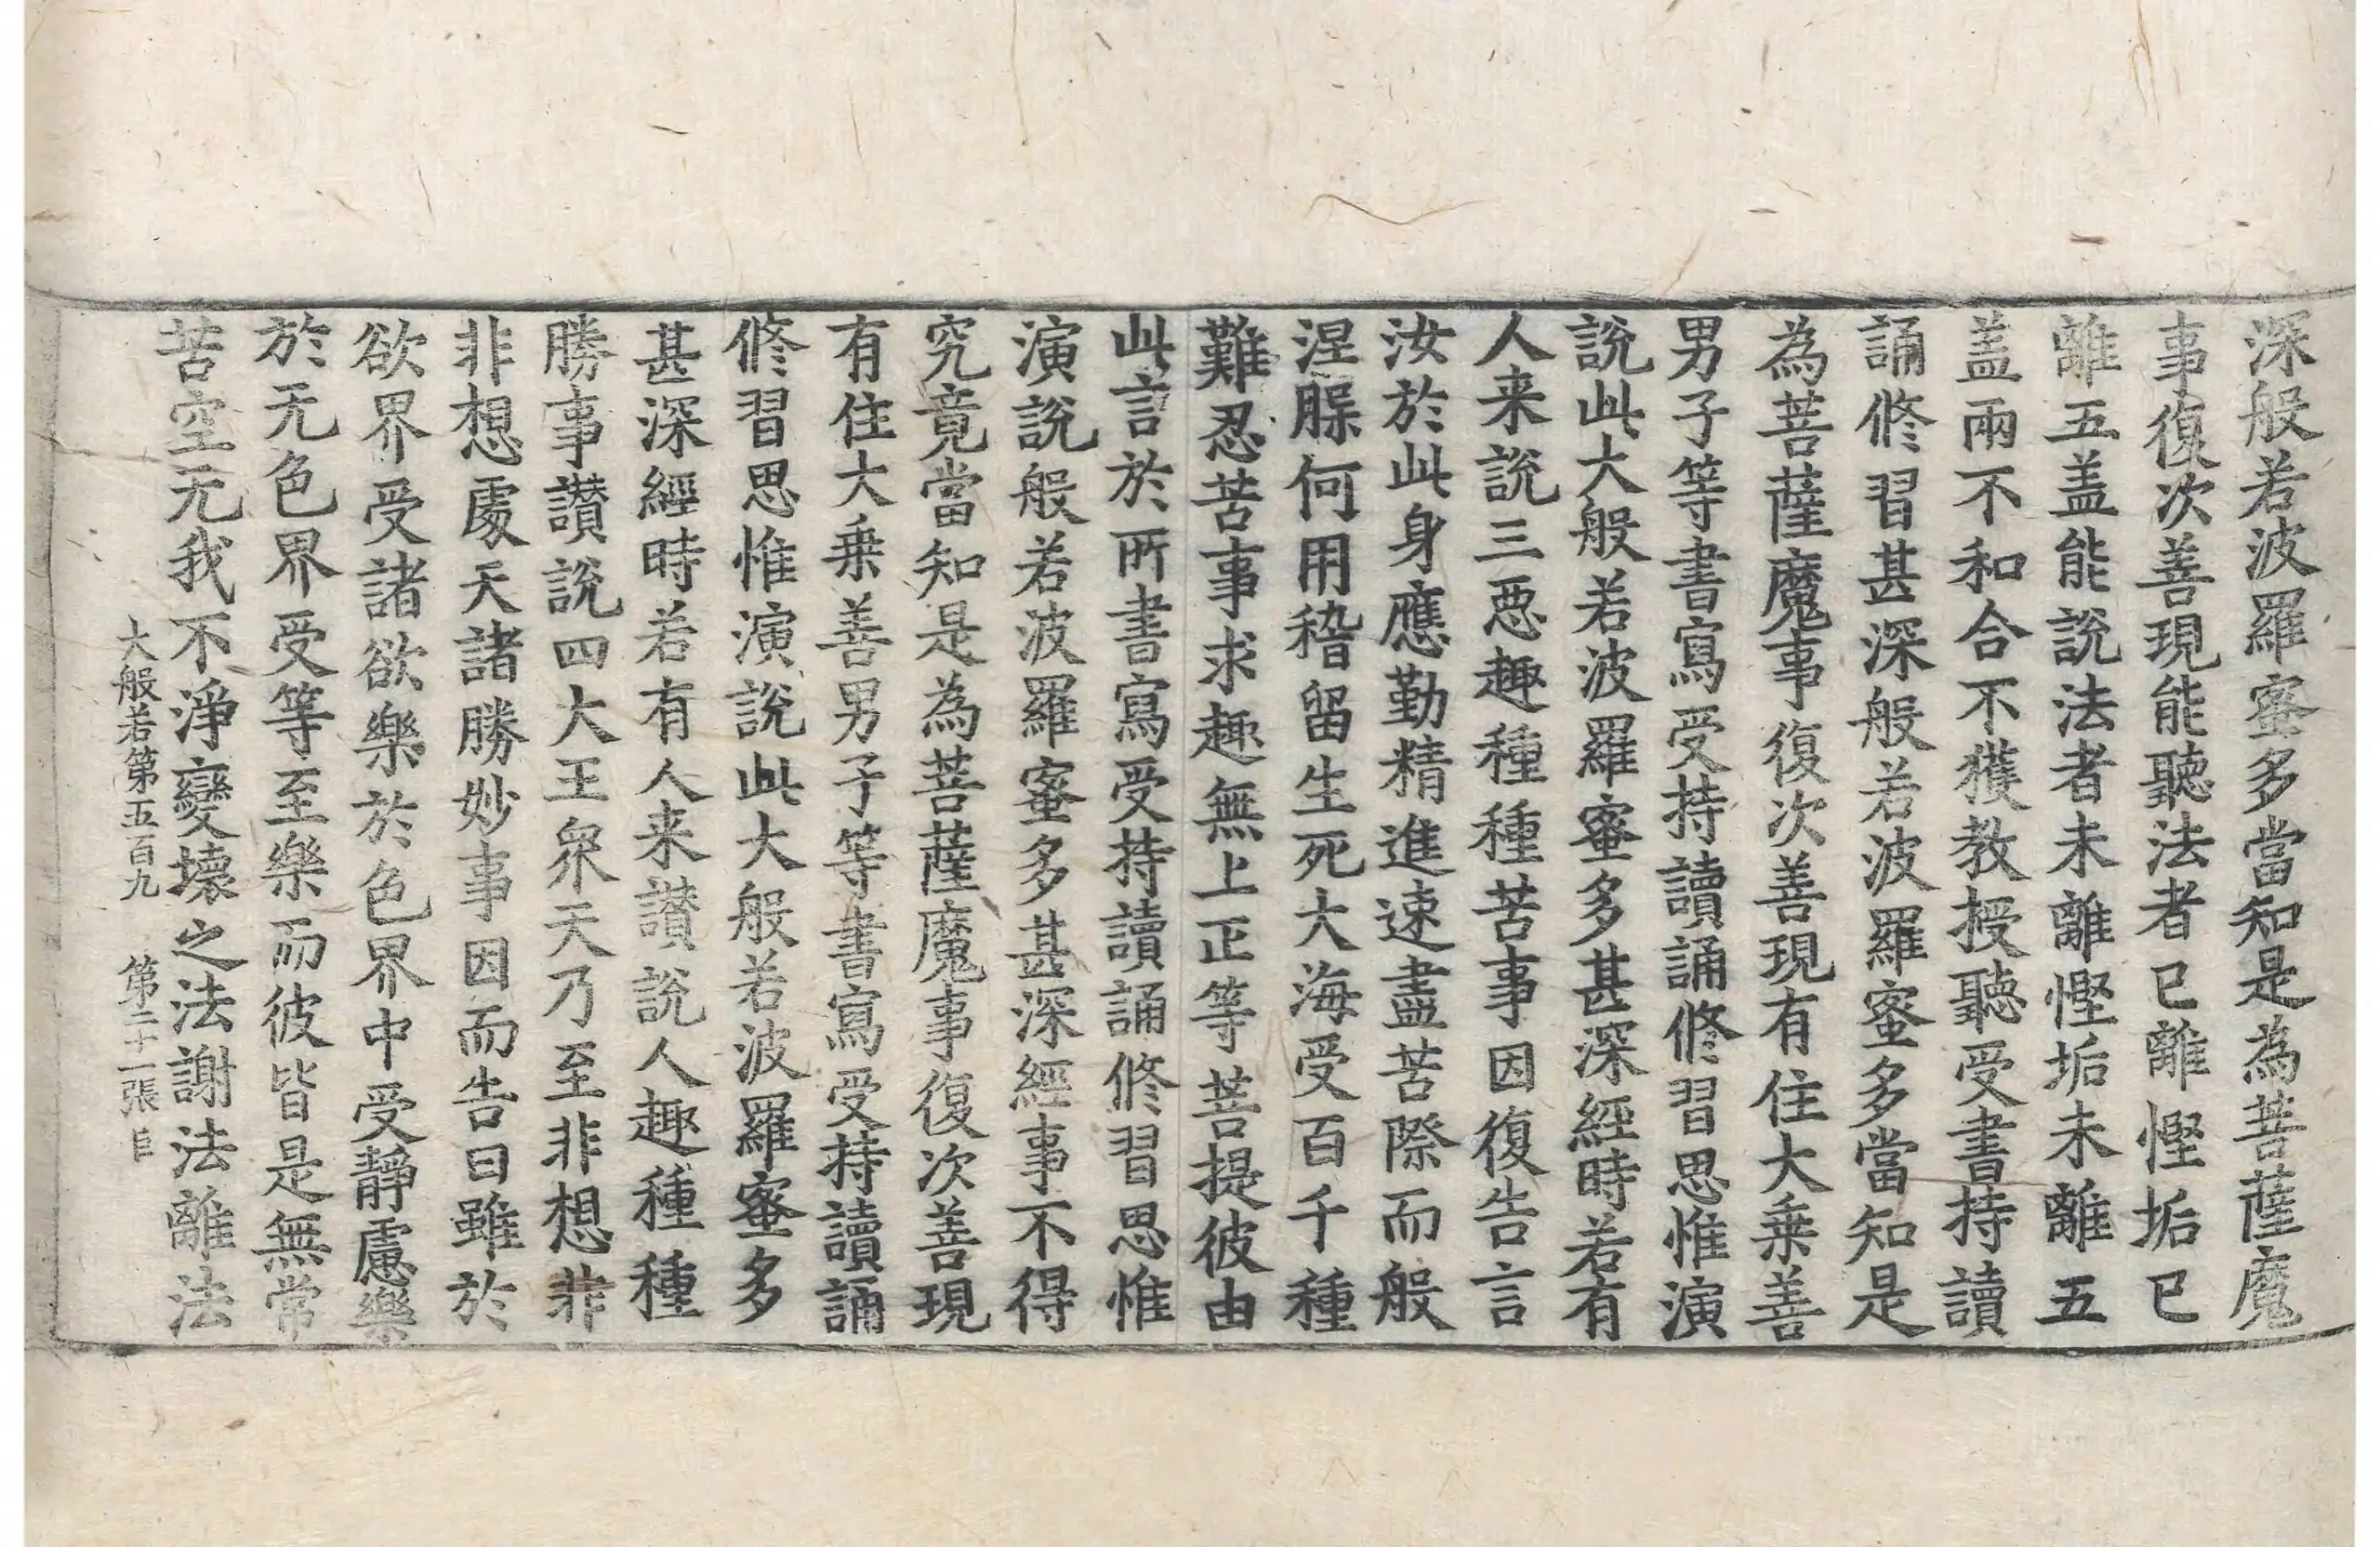 深般若波羅蜜多當知是為菩薩魔
事復次善現能聽法者已離慳垢已
離五盖能說法者未離慳垢未離五
盖兩不和合不獲教授聽受書持讀
誦修習甚深般若波羅蜜多當知是
為菩薩魔事復次善現有住大乗善
男子等書寫受持讀誦修習思惟演
說此大般若波羅蜜多甚深經時若有
人来說三惡趣種種苦事因復告言
汝於此身應勤精進速盡苦際而般
涅槃何用稽留生死大海受百千種
難忍苦事求趣無上正等菩提彼由
此言於所書寫受持讀誦修習思惟
演說般若波羅蜜多甚深經事不得
究竟當知是為菩薩魔事復次善現
有住大乗善男子等書寫受持讀誦
修習思惟演說此大般若波羅蜜多
甚深經時若有人来讃說人趣種種
勝事讃說四大王衆天乃至非想非
非想處天諸勝妙事因而告曰雖於
欲界受諸欲樂於色界中受靜慮樂
於无色界受等至樂而彼皆是無常
苦空无我不淨變壞之法謝法離法
大般若第五百九 第二十一張